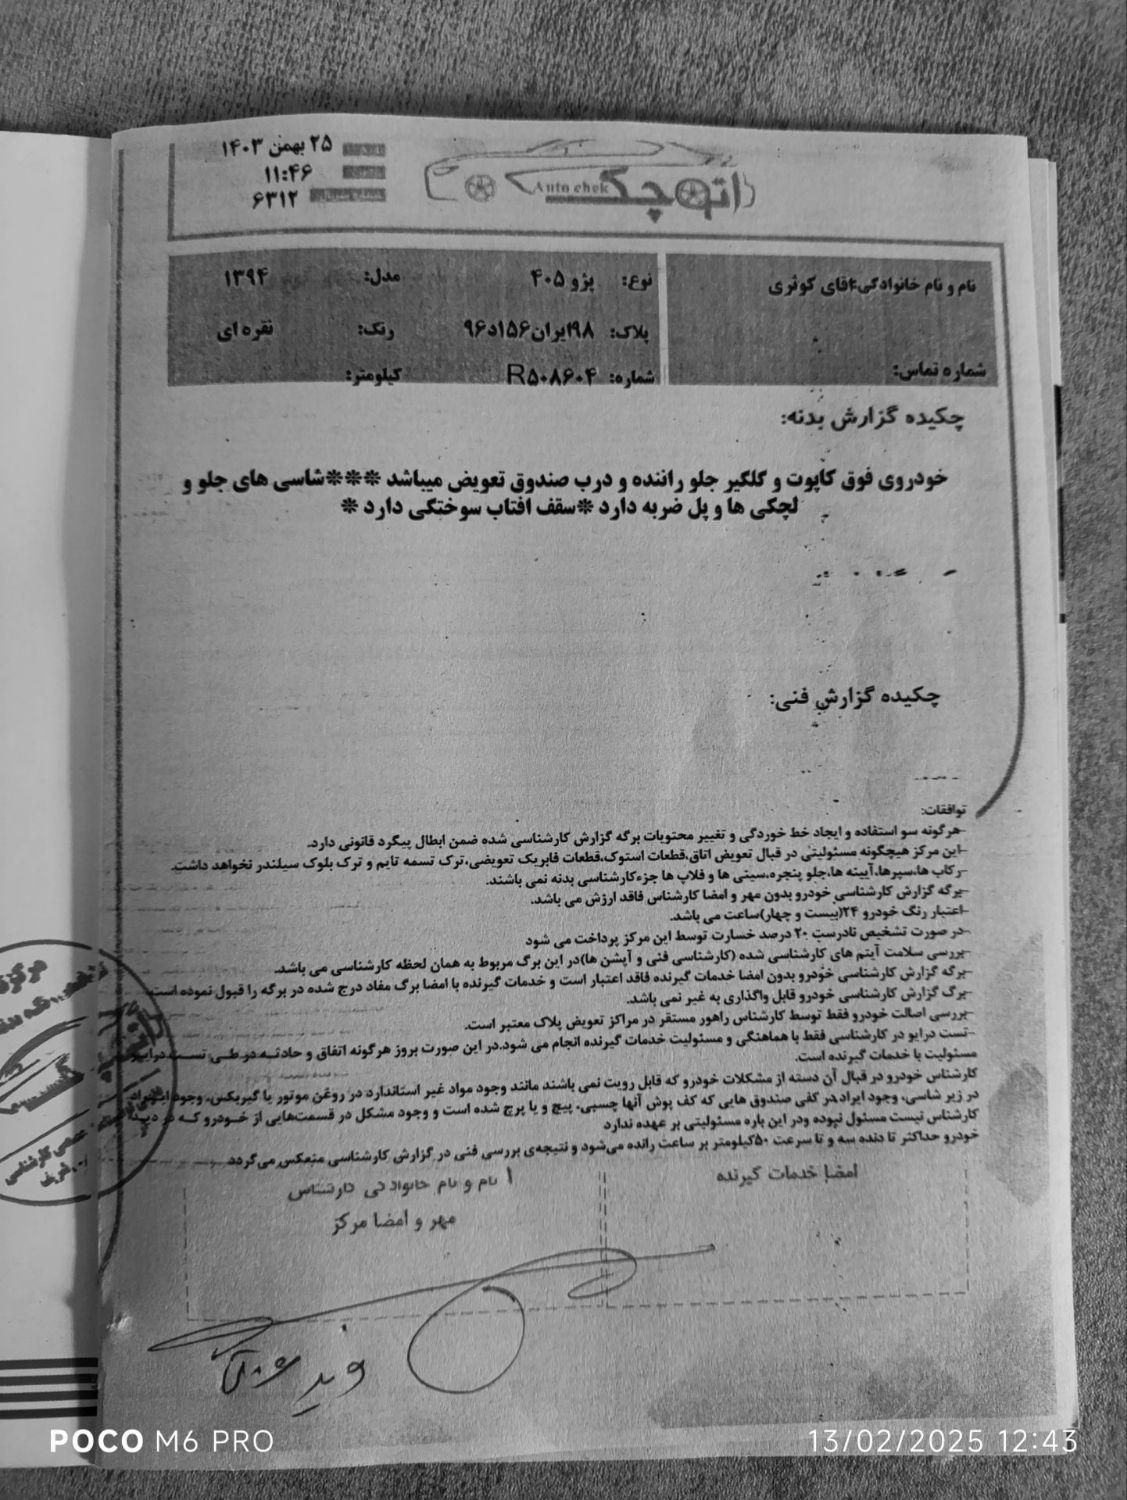 ۲۵ بهمن ۱۴۰۳
۱۱:۴۶
۶۳۱۲
اتوچک
Auto chek
نام و نام خانوادگی:آقای کوثری
نوع: پژو ۴۰۵ مدل: ۱۳۹۴
پلاک: ۹۸ایران۱۵۶د۹۶ رنگ: نقره ای
شماره تماس:
شماره: R۵۰۸۶۰۴ کیلومتر:
چکیده گزارش بدنه:
خودروی فوق کاپوت و گلگیر جلو راننده و درب صندوق تعویض میباشد ***شاسی های جلو و
لچکی ها و پل ضربه دارد *سقف افتاب سوختگی دارد *
چکیده گزارش فنی:
توافقات:
-هرگونه سو استفاده و ایجاد خط خوردگی و تغییر محتویات برگه گزارش کارشناسی شده ضمن ابطال پیگرد قانونی دارد.
-این مرکز هیچگونه مسئولیتی در قبال تعویض اتاق،قطعات استوک،قطعات فابریک تعویضی،ترک تسمه تایم و ترک بلوک سیلندر نخواهد داشت.
-رکاب ها،سپرها،آیینه ها،جلو پنجره،سینی ها و فلاپ ها جزءکارشناسی بدنه نمی باشند.
-برگه گزارش کارشناسی خودرو بدون مهر و امضا کارشناس فاقد ارزش می باشد.
-اعتبار رنگ خودرو ۲۴(بیست و چهار)ساعت می باشد.
-در صورت تشخیص نادرست ۲۰ درصد خسارت توسط این مرکز پرداخت می شود
-بررسی سلامت آیتم های کارشناسی شده (کارشناسی فنی و آپشن ها)در این برگ مربوط به همان لحظه کارشناسی می باشد.
-برگه گزارش کارشناسی خودرو بدون امضا خدمات گیرنده فاقد اعتبار است و خدمات گیرنده با امضا برگ مفاد درج شده در برگه را قبول نموده است.
-برگ گزارش کارشناسی خودرو قابل واگذاری به غیر نمی باشد.
-بررسی اصالت خودرو فقط توسط کارشناس راهور مستقر در مراکز تعویض پلاک معتبر است.
-تست درایو در کارشناسی فقط با هماهنگی و مسئولیت خدمات گیرنده انجام می شود.در این صورت بروز هرگونه اتفاق و حادثه در طی تست درایو
مسئولیت با خدمات گیرنده است.
کارشناس خودرو در قبال آن دسته از مشکلات خودرو که قابل رویت نمی باشند مانند وجود مواد غیر استاندارد در روغن موتور یا گیربکس، وجود ایراد
در زیر شاسی، وجود ایراد در کفی صندوق هایی که کف پوش آنها چسبی، پیچ و یا پرچ شده است و وجود مشکل در قسمت‌هایی از خودرو که در دید
کارشناس نیست مسئول نبوده ودر این باره مسئولیتی بر عهده ندارد
خودرو حداکثر تا دنده سه و تا سرعت ۵۰کیلومتر بر ساعت رانده می‌شود و نتیجه‌ی بررسی فنی در گزارش کارشناسی منعکس می‌گردد
امضا خدمات گیرنده
نام و نام خانوادگی کارشناس
مهر و امضا مرکز
POCO M6 PRO
13/02/2025 12:43